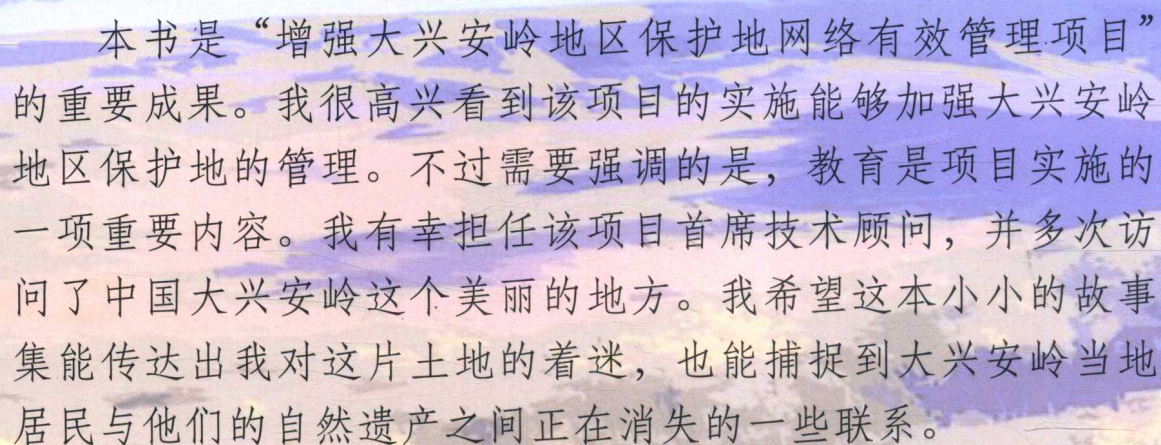 本书是“增强大兴安岭地区保护地网络有效管理项目”
的重要成果。我很高兴看到该项目的实施能够加强大兴安岭
地区保护地的管理。不过需要强调的是，教育是项目实施的
一项重要内容。我有幸担任该项目首席技术顾问，并多次访
问了中国大兴安岭这个美丽的地方。我希望这本小小的故事
集能传达出我对这片土地的着迷，也能捕捉到大兴安岭当地
居民与他们的自然遗产之间正在消失的一些联系。